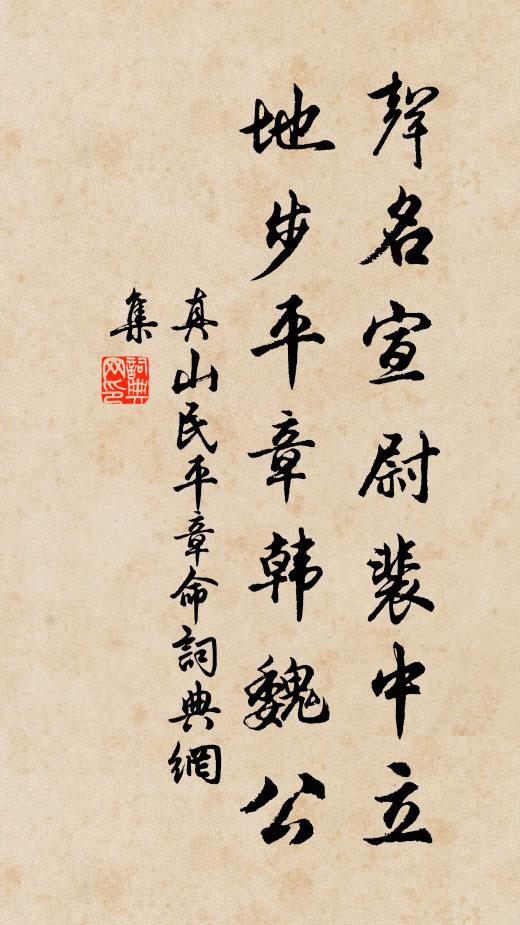 聲名宣尉裴中立
地步平章韩魏公
真山民平章命詞典網
集
詞典网印